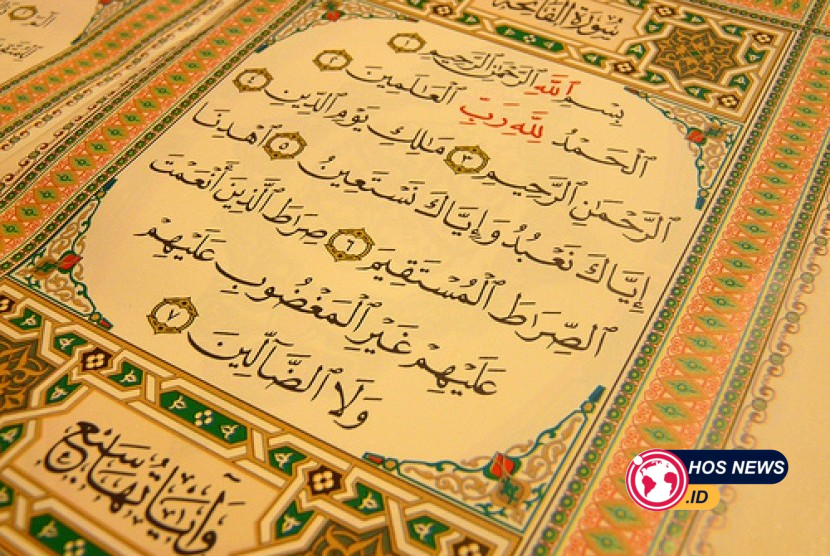 سُورَةُ الْفَاتِحَةِ
بِسْمِ ٱللَّهِ ٱلرَّحْمَٰنِ ٱلرَّحِيمِ ١
ٱلْحَمْدُ لِلَّهِ رَبِّ ٱلْعَالَمِينَ ٢
ٱلرَّحْمَٰنِ ٱلرَّحِيمِ ٣ مَالِكِ يَوْمِ ٱلدِّينِ ٤
إِيَّاكَ نَعْبُدُ وَإِيَّاكَ نَسْتَعِينُ ٥ ٱهْدِنَا
ٱلصِّرَاطَ ٱلْمُسْتَقِيمَ ٦ صِرَاطَ ٱلَّذِينَ أَنْعَمْتَ
عَلَيْهِمْ غَيْرِ ٱلْمَغْضُوبِ عَلَيْهِمْ
وَلَا ٱلضَّآلِّينَ ٧
وَآيَاتُهَا سَبْعٌ
HOS NEWS
.ID